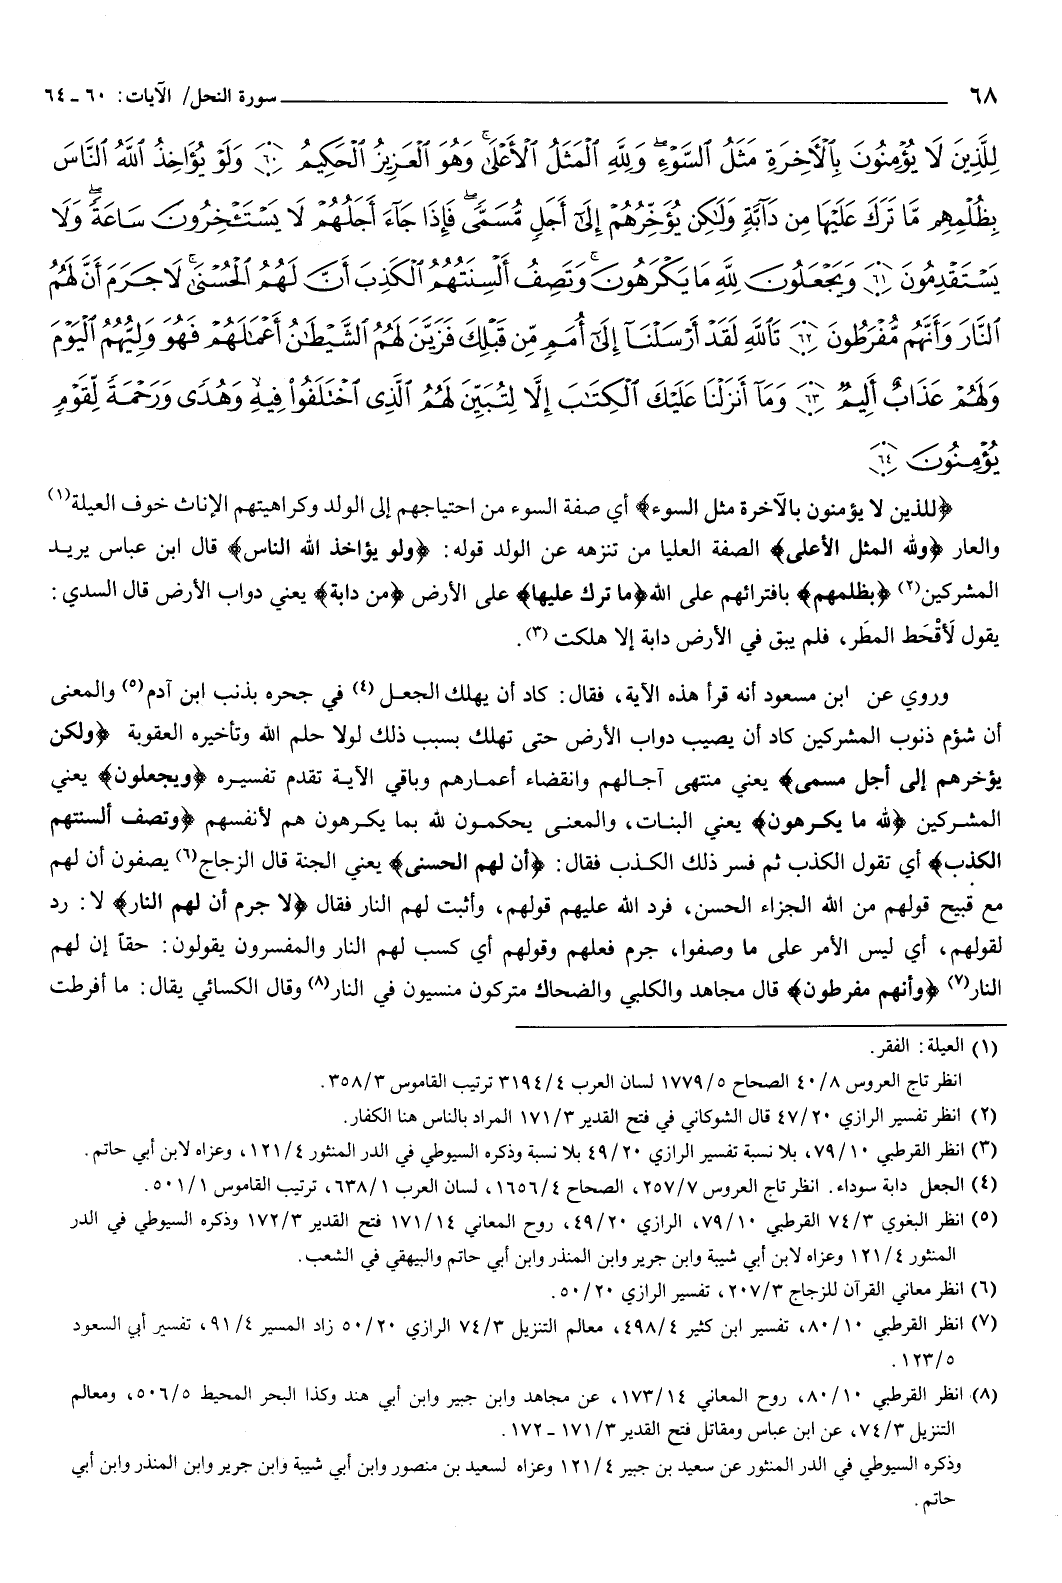 ٦٨ سورة النحل/ الآيات: ٦٠ ـ ٦٤
لِلَّذِينَ لَا يُؤْمِنُونَ بِالْآخِرَةِ مَثَلُ السَّوْءِ ۖ وَلِلَّهِ الْمَثَلُ الْأَعْلَىٰ ۚ وَهُوَ الْعَزِيزُ الْحَكِيمُ ٦٠ وَلَوْ يُؤَاخِذُ اللَّهُ النَّاسَ
بِظُلْمِهِم مَّا تَرَكَ عَلَيْهَا مِن دَآبَّةٍ وَلَٰكِن يُؤَخِّرُهُمْ إِلَىٰٓ أَجَلٍ مُّسَمًّى ۖ فَإِذَا جَآءَ أَجَلُهُمْ لَا يَسْتَـْٔخِرُونَ سَاعَةً ۖ وَلَا
يَسْتَقْدِمُونَ ٦١ وَيَجْعَلُونَ لِلَّهِ مَا يَكْرَهُونَ ۚ وَتَصِفُ أَلْسِنَتُهُمُ الْكَذِبَ أَنَّ لَهُمُ الْحُسْنَىٰ ۚ لَا جَرَمَ أَنَّ لَهُمُ
النَّارَ وَأَنَّهُم مُّفْرَطُونَ ٦٢ تَاللَّهِ لَقَدْ أَرْسَلْنَآ إِلَىٰٓ أُمَمٍ مِّن قَبْلِكَ فَزَيَّنَ لَهُمُ الشَّيْطَٰنُ أَعْمَٰلَهُمْ فَهُوَ وَلِيُّهُمُ الْيَوْمَ
وَلَهُمْ عَذَابٌ أَلِيمٌ ٦٣ وَمَآ أَنزَلْنَا عَلَيْكَ الْكِتَٰبَ إِلَّا لِتُبَيِّنَ لَهُمُ الَّذِى اخْتَلَفُوا۟ فِيهِ ۙ وَهُدًى وَرَحْمَةً لِّقَوْمٍ
يُؤْمِنُونَ ٦٤
﴿للذين لا يؤمنون بالآخرة مثل السوء﴾ أي صفة السوء من احتياجهم إلى الولد وكراهيتهم الإناث خوف العيلة(١)
والعار ﴿ولله المثل الأعلى﴾ الصفة العليا من تنزهه عن الولد قوله: ﴿ولو يؤاخذ الله الناس﴾ قال ابن عباس يريد
المشركين(٢) ﴿بظلمهم﴾ بافترائهم على الله﴿ما ترك عليها﴾ على الأرض ﴿من دابة﴾ يعني دواب الأرض قال السدي:
يقول لَأَقْحَط المطَر، فلم يبق في الأرض دابة إلا هلكت (٣).
وروي عن ابن مسعود أنه قرأ هذه الآية، فقال: كاد أن يهلك الجعل (٤) في جحره بذنب ابن آدم(٥) والمعنى
أن شؤم ذنوب المشركين كاد أن يصيب دواب الأرض حتى تهلك بسبب ذلك لولا حلم الله وتأخيره العقوبة ﴿ولكن
يؤخرهم إلى أجل مسمى﴾ يعني منتهى آجالهم وانقضاء أعمارهم وباقي الآية تقدم تفسيره ﴿ويجعلون﴾ يعني
المشركين ﴿لله ما يكرهون﴾ يعني البنات، والمعنى يحكمون لله بما يكرهون هم لأنفسهم ﴿وتصف ألسنتهم
الكذب﴾ أي تقول الكذب ثم فسر ذلك الكذب فقال: ﴿أن لهم الحسنى﴾ يعني الجنة قال الزجاج(٦) يصفون أن لهم
مع قبيح قولهم من الله الجزاء الحسن، فرد الله عليهم قولهم، وأثبت لهم النار فقال ﴿لا جرم أن لهم النار﴾ لا: رد
لقولهم، أي ليس الأمر على ما وصفوا، جرم فعلهم وقولهم أي كسب لهم النار والمفسرون يقولون: حقاً إن لهم
النار(٧) ﴿وأنهم مفرطون﴾ قال مجاهد والكلبي والضحاك متركون منسيون في النار(٨) وقال الكسائي يقال: ما أفرطت
(١) العيلة: الفقر.
انظر تاج العروس ٤٠/٨ الصحاح ١٧٧٩/٥ لسان العرب ٣١٩٤/٤ ترتيب القاموس ٣٥٨/٣.
(٢) انظر تفسير الرازي ٤٧/٢٠ قال الشوكاني في فتح القدير ١٧١/٣ المراد بالناس هنا الكفار.
(٣) انظر القرطبي ٧٩/١٠، بلا نسبة تفسير الرازي ٤٩/٢٠ بلا نسبة وذكره السيوطي في الدر المنثور ١٢١/٤، وعزاه لابن أبي حاتم.
(٤) الجعل دابة سوداء. انظر تاج العروس ٢٥٧/٧، الصحاح ١٦٥٦/٤، لسان العرب ٦٣٨/١، ترتيب القاموس ٥٠١/١.
(٥) انظر البغوي ٧٤/٣ القرطبي ٧٩/١٠، الرازي ٤٩/٢٠، روح المعاني ١٧١/١٤ فتح القدير ١٧٢/٣ وذكره السيوطي في الدر
المنثور ١٢١/٤ وعزاه لابن أبي شيبة وابن جرير وابن المنذر وابن أبي حاتم والبيهقي في الشعب.
(٦) انظر معاني القرآن للزجاج ٢٠٧/٣، تفسير الرازي ٥٠/٢٠.
(٧) انظر القرطبي ٨٠/١٠، تفسير ابن كثير ٤٩٨/٤، معالم التنزيل ٧٤/٣ الرازي ٥٠/٢٠ زاد المسير ٩١/٤، تفسير أبي السعود
١٢٣/٥.
(٨) انظر القرطبي ٨٠/١٠، روح المعاني ١٧٣/١٤، عن مجاهد وابن جبير وابن أبي هند وكذا البحر المحيط ٥٠٦/٥، ومعالم
التنزيل ٧٤/٣، عن ابن عباس ومقاتل فتح القدير ١٧١/٣ ـ ١٧٢.
وذكره السيوطي في الدر المنثور عن سعيد بن جبير ١٢١/٤ وعزاه لسعيد بن منصور وابن أبي شيبة وابن جرير وابن المنذر وابن أبي
حاتم.